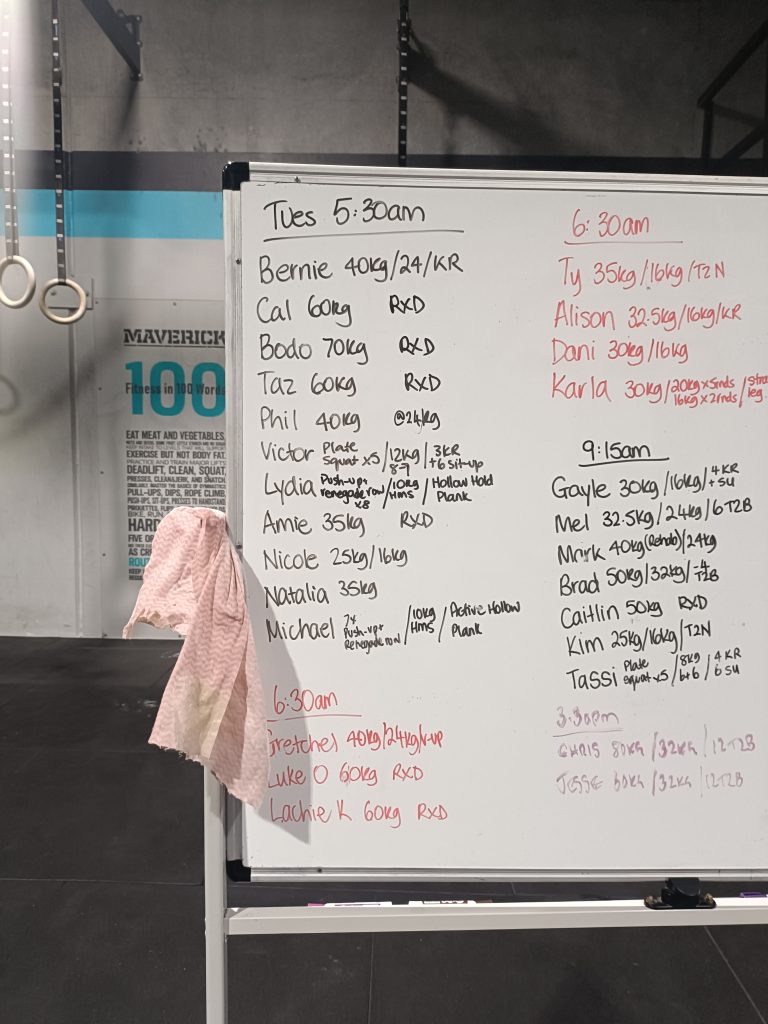 Tues 5:30am
Bernie 40kg/24/KR
Cal 60kg RXD
Bodo 70kg RXD
Taz 60kg RXD
Phil 40kg @24kg
Victor Plate Squat x5/12kg 8-7/3KR +6 sit-up
Lydia Push-up+ renegade row x8/10kg Hms/Hollow Hold Plank
Amie 35kg RXD
Nicole 25kg/16kg
Natalia 35kg
Michael 7x Push-up+ Renegade row/10kg Hms/Active Hollow Plank
6:30am
Gretchel 40kg/24kg/V-up
Luke O 60kg RXD
Lachie K 60kg RXD
6:30am
Ty 35kg/16kg/T2N
Alison 32.5kg/16kg/KR
Dani 30kg/16kg
Karla 30kg/20kg x 5rnds 16kg x 2rnds/ leg
9:15am
Gayle 30kg/16kg/4KR +SU
Mel 32.5kg/24kg/6T2B
Mark 40kg (Rehab)/24kg
Brad 50kg/32kg/-4 T2B
Caitlin 50kg RXD
Kim 25kg/16kg/T2N
Tassi Plate squat x5/8kg 6+6/4KR 6SU
3:30pm
CHRIS 80KG/32KG/12T2B
JESSE 60KG/32KG/12T2B
MAVERICK
100
Fitness in 100 Words
EAT MEAT AND VEGETABLES,
EXERCISE BUT NOT BODY FAT.
PRACTICE AND TRAIN MAJOR LIFTS
DEADLIFT, CLEAN, SQUAT,
PRESSES, CLEAN&JERK, AND SNATCH.
SIMILARLY, MASTER THE BASICS OF GYMNASTICS
PULL-UPS, DIPS, ROPE CLIMB,
PUSH-UPS, SIT-UPS, PRESSES TO HANDSTAND
BIKE, RUN,
HARD
FIVE OR
AS CRE
ROUT